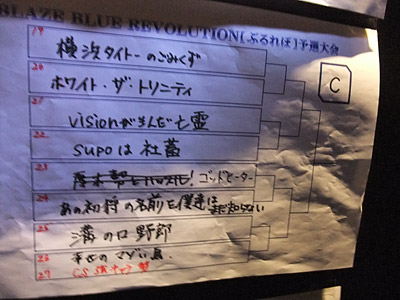 BLAZE BLUE REVOLUTION(ぶるれぼ)予選大会
C
19 横浜タイトーのごみくず
20 ホワイト・ザ・トリニティ
21 visionが生んだ亡霊
22 supoは社畜
23 ゴッドヒーター
24 あの初狩の名前を僕達はまだ知らない
25 溝の口野郎
26
27